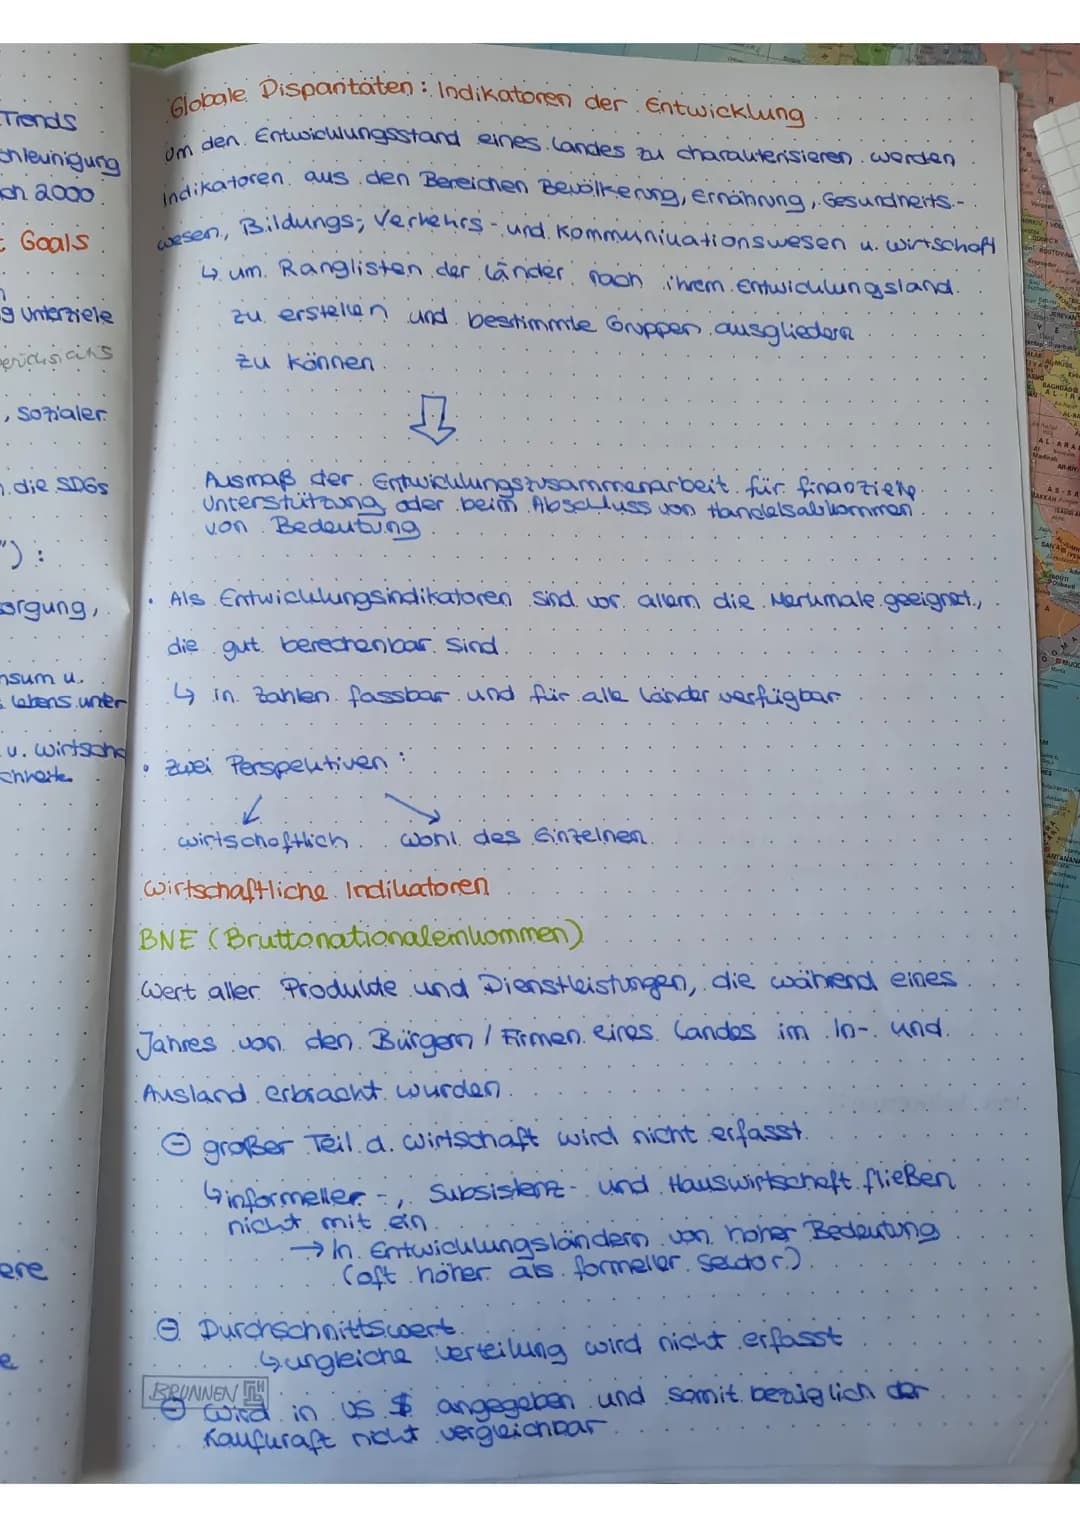 Trends
ch 2000
Goals
g unterziele
, sozialer
die SDGs
"):
orgung,
nsum u.
lebens unter
u. wirtscha
ere
Globale Disparitäten: Indikatoren der Entwicklung
Um den Entwicklungsstand eines Landes zu charakterisieren werden
Indikatoren aus den Bereichen Bevölkerung, Ernährung, Gesundheits-
wesen, Bildungs-, Verkehrs- und Kommunikationswesen u. wirtschaft
↳ um Ranglisten der Länder nach ihrem Entwicklungsland
zu erstellen und bestimmte Gruppen ausgliedern
zu können
⇩
Ausmaß der Entwicklungszusammenarbeit für finanzielle
Unterstützung oder beim Abschluss von Handelsabkommen
von Bedeutung
• Als Entwicklungsindikatoren sind vor allem die Merkmale geeignet,
die gut berechenbar sind.
↳ in Zahlen fassbar und für alle Länder verfügbar
• zwei Perspektiven:
↙ ↘
wirtschaftlich wohl des Einzelnen
Wirtschaftliche Indikatoren
BNE (Bruttonationaleinkommen)
Wert aller Produkte und Dienstleistungen, die während eines
Jahres von den Bürgern / Firmen eines Landes im In- und
Ausland erbracht wurden.
⊖ großer Teil d. Wirtschaft wird nicht erfasst
↳ informeller -, Subsistenz- und Hauswirtschaft fließen
nicht mit ein
→ In Entwicklungsländern von hoher Bedeutung
(oft höher als formeller Sektor)
⊖ Durchschnittswert
↳ ungleiche Verteilung wird nicht erfasst
BRUNNEN
⊖ wird in US $ angegeben und somit bezüglich der
Kaufkraft nicht vergleichbar